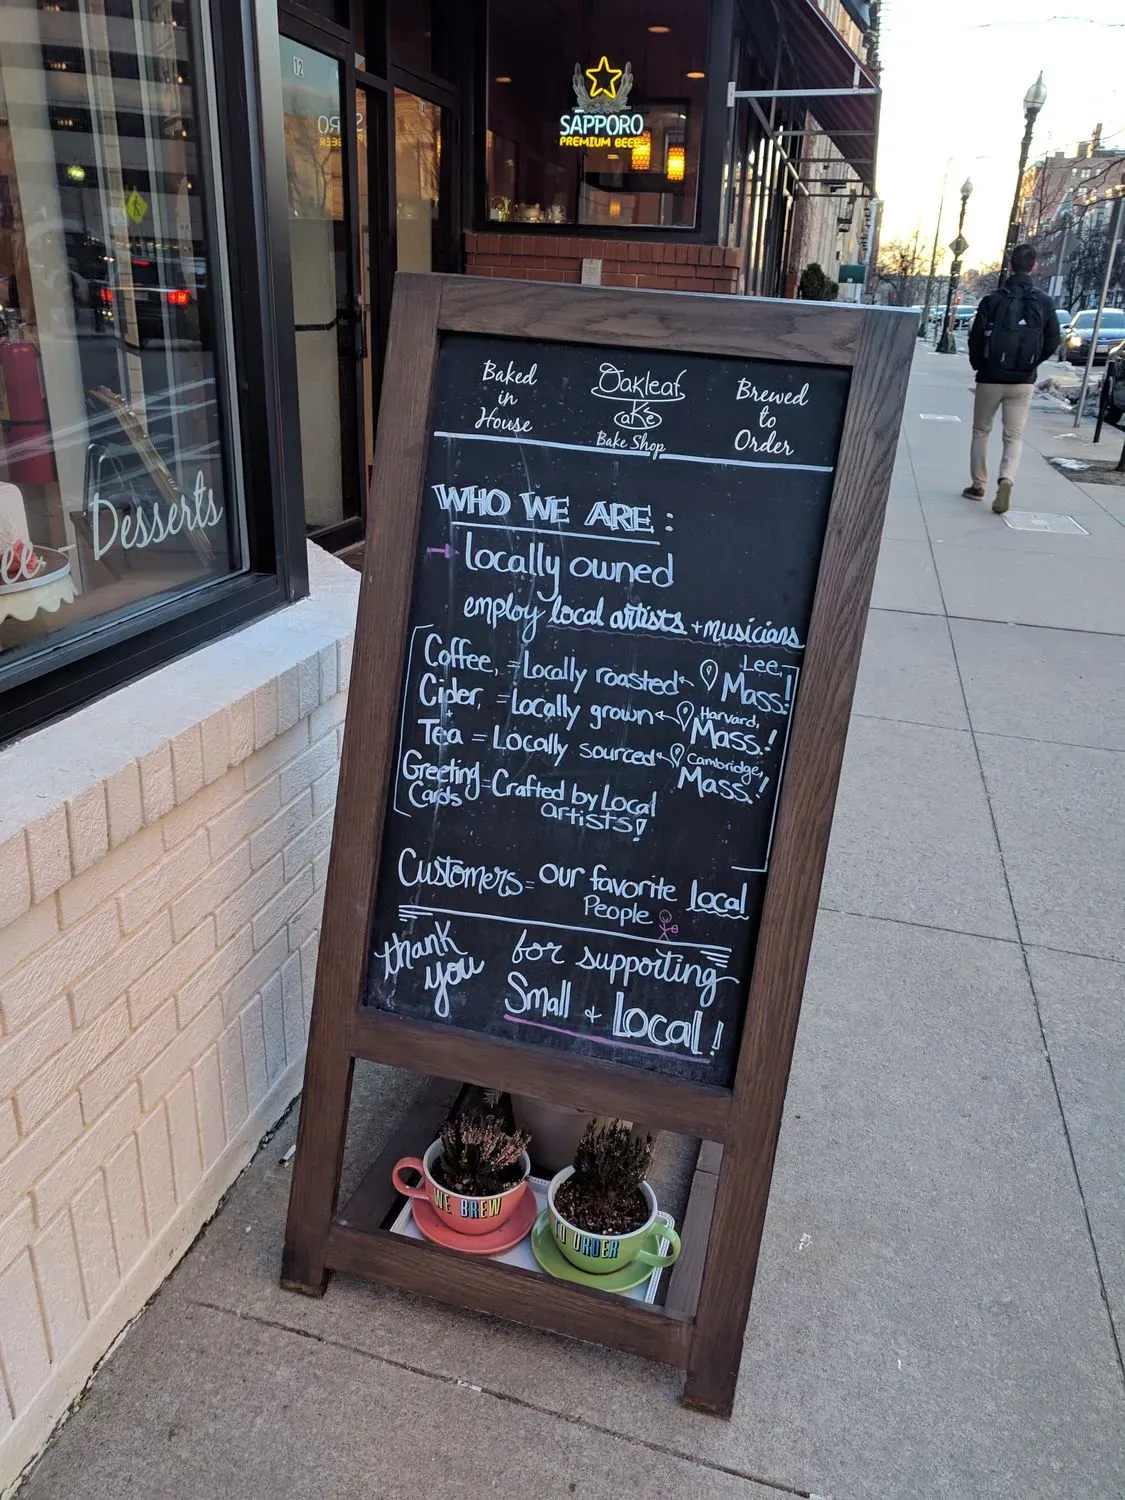 12
SAPPORO
PREMIUM BEER
Desserts
Baked
in
House
Oakleaf
Cakes
Bake Shop
Brewed
to
Order
WHO WE ARE:
locally owned
employ local artists + musicians
Coffee, = Locally roasted Lee, Mass!
Cider, = Locally grown Harvard, Mass.!
+
Tea = Locally sourced Cambridge, Mass.!
Greeting Cards = Crafted by Local
artists!
Customers = our favorite local
People
thank
you
for supporting
Small + Local!
WE BREW
TO ORDER